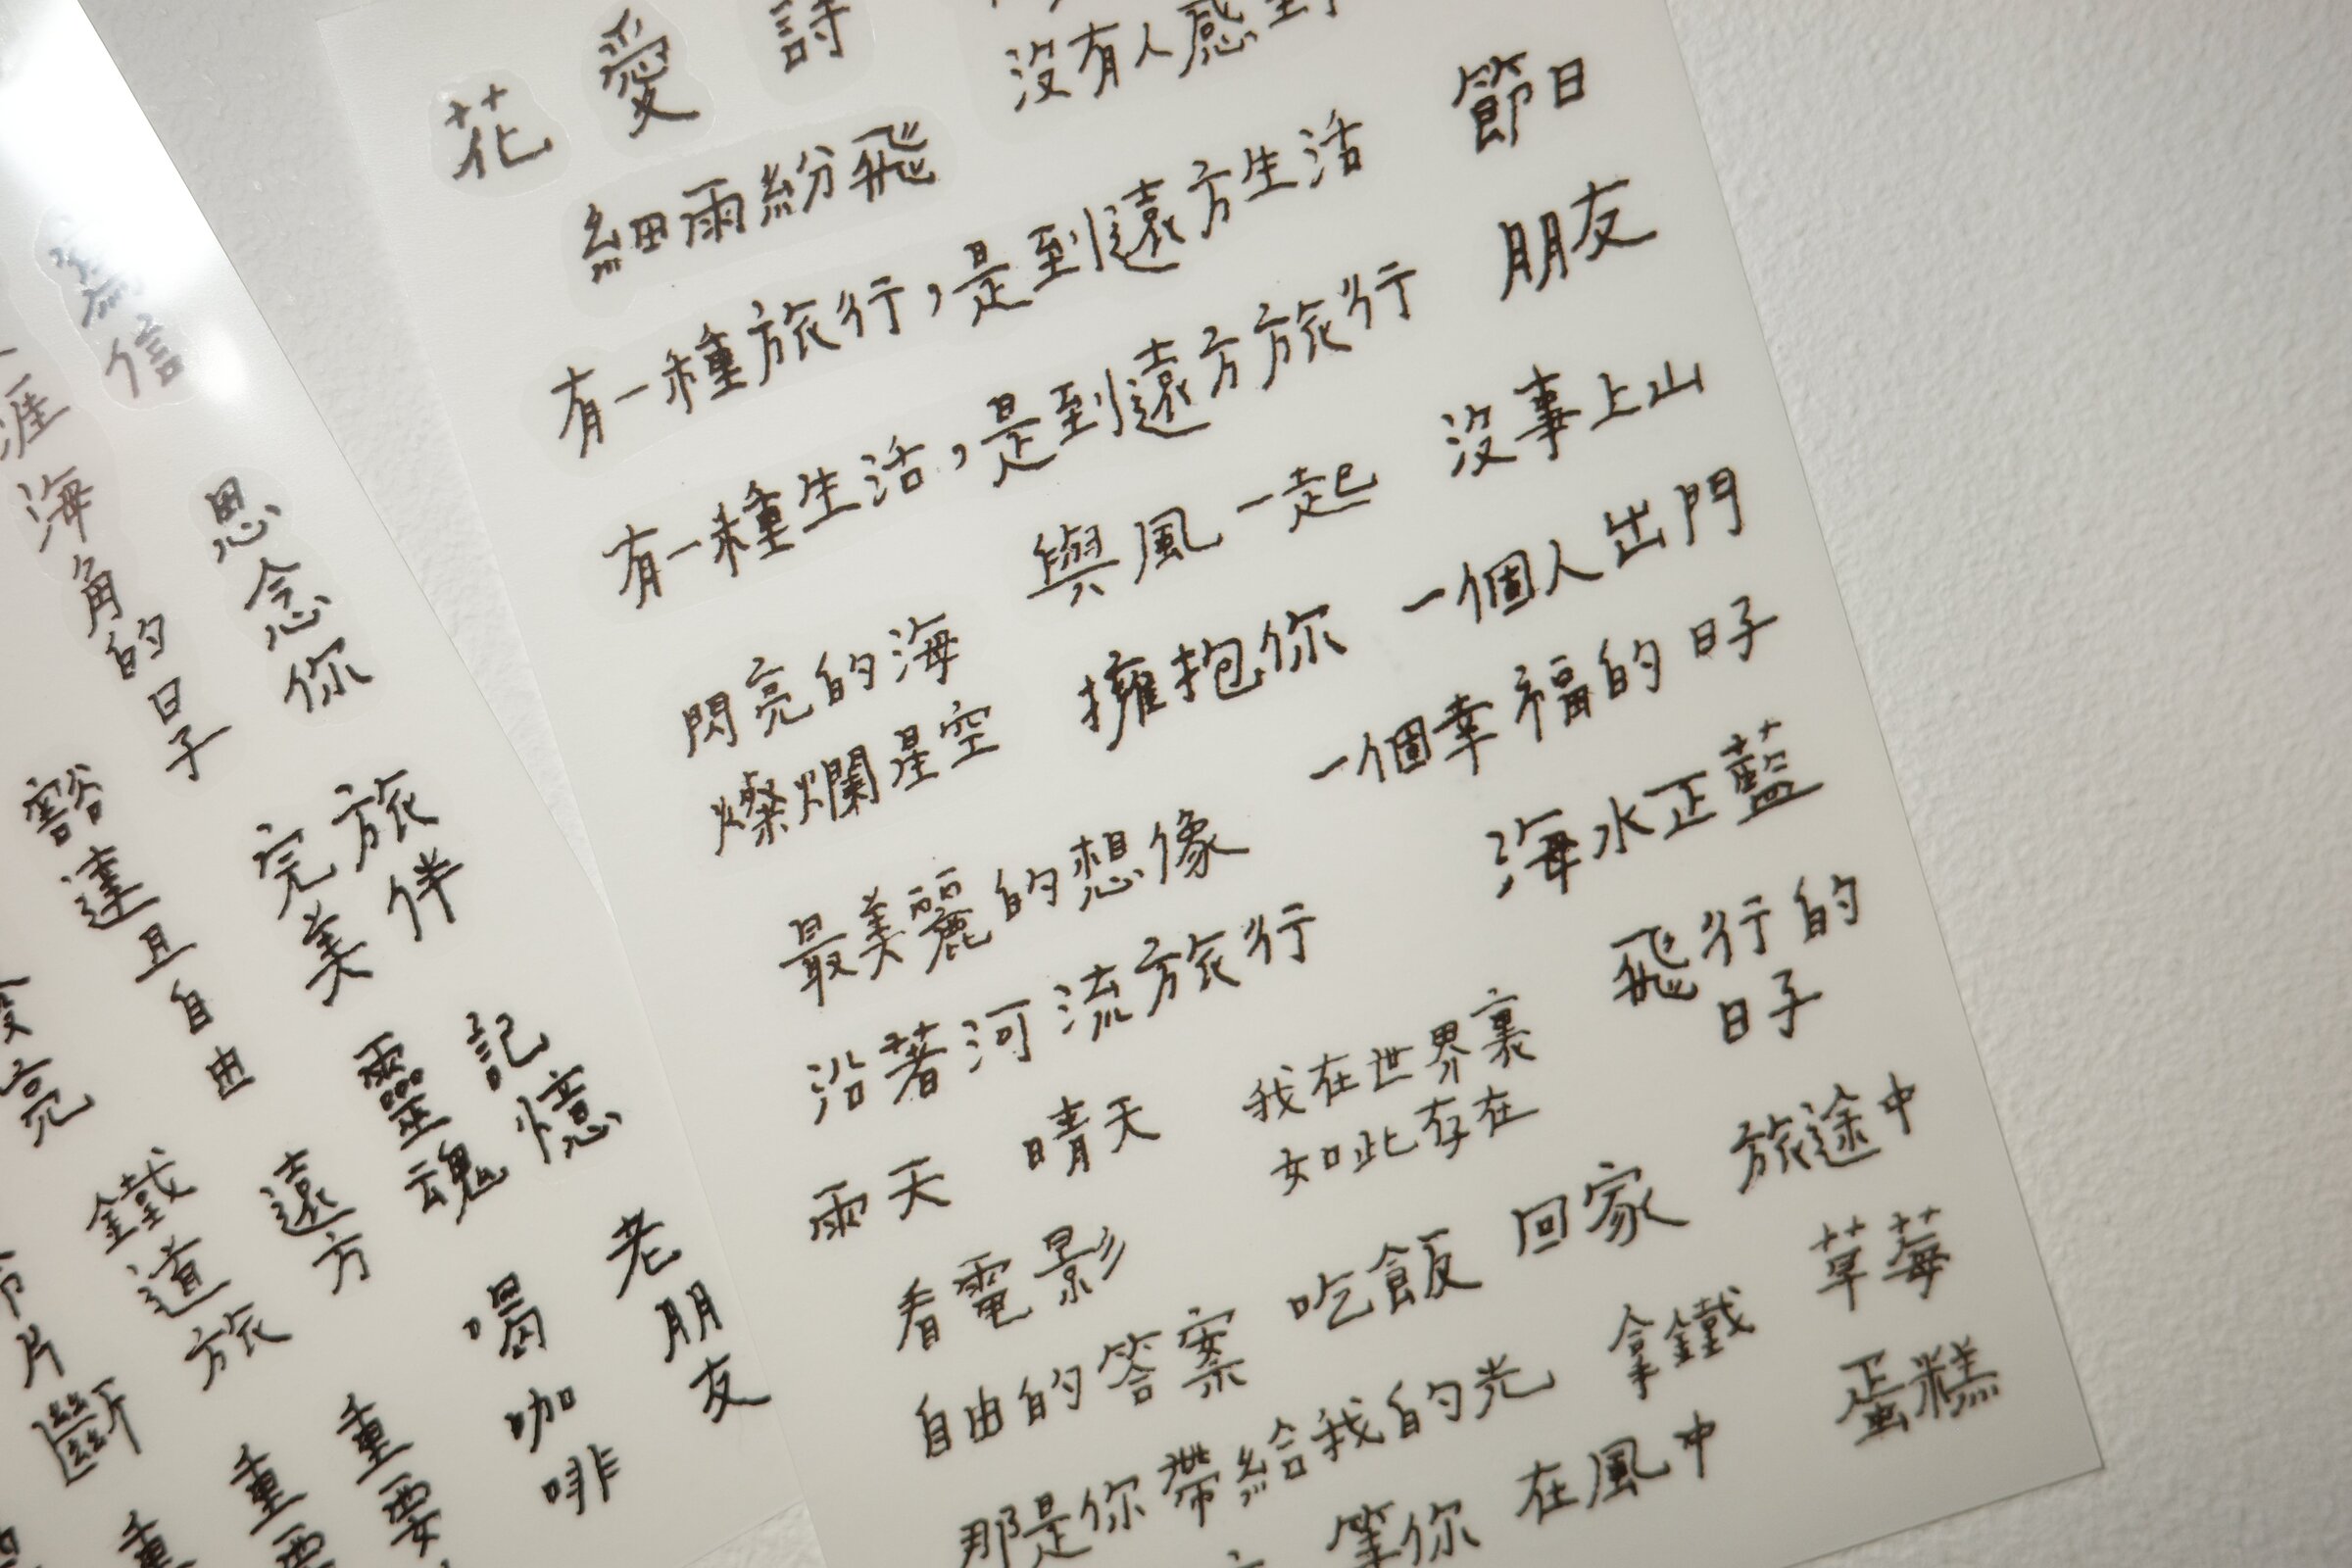 花
愛
詩
沒有人感到
細雨紛飛
節日
有一種旅行，是到遠方生活
朋友
有一種生活，是到遠方旅行
沒事上山
與風一起
一個人出門
閃亮的海
擁抱你
燦爛星空
一個幸福的日子
最美麗的想像
海水正藍
沿著河流旅行
飛行的
日子
雨天
晴天
我在世界裏
如此存在
旅途中
看電影
吃飯
回家
草莓
自由的答案
拿鐵
蛋糕
那是你帶給我的光
等你
在風中
寫信
涯海角的日子
思念你
豁達且自由
旅伴
完美
記憶
靈魂
遠方
鐵道旅
老朋友
喝咖啡
重要
重要
亮
片斷